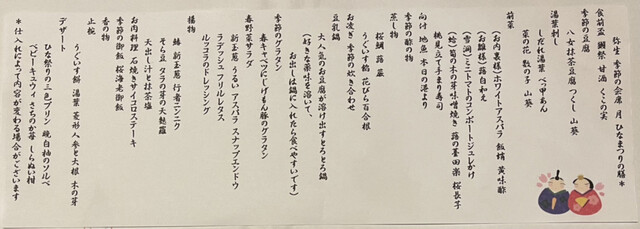 弥生 季節の会席 月 ひなまつりの膳*
食前盃 御祭 甘酒 くこの実
季節の豆腐
八女抹茶豆腐 つくし 山葵
湯葉刺し
しだれ湯葉 べっ甲あん
菜の花 数の子 山葵
前菜
(お内裏様)ホワイトアスパラ 飯蛸 黄味酢
(お雛様) 蕗白和え
(雪洞)ミニトマトのコンポートジュレかけ
(蛤) 筍の木の芽味噌焼き 蕗の墨田楽 桜長子
桃見立て手まり寿司
向付 地魚 本日の港より
季節の酢の物
蒸し物
桜鯛 蕗 蕨
うぐいす餡 花びら百合根
お凌ぎ 季節の炊き合わせ
豆乳鍋
大人気のお豆腐が溶け出すとろとろ鍋
(好きな薬味を溶いて、
お出しは鍋に入れたら食べやすいです)
季節のグラタン
春キャベツにしげもん豚のグラタン
春野菜サラダ
新玉葱 うるい アスパラ スナップエンドウ
ラデッシュ フリルレタス
ルッコラのドレッシング
揚物
鰆 新玉葱 行者ニンニク
そら豆 タラの芽の天麩羅
天出し汁と抹茶塩
お肉料理 石焼きサイコロステーキ
季節の御飯 桜海老御飯
香の物
止椀
うぐいす餅 湯葉 菱形人参と大根 木の芽
デザート
ひな祭りの三色プリン 晩白柚のソルベ
ベビーキュウイ さちのか苺 しらぬい柑
*仕入れによって内容が変わる場合がございます